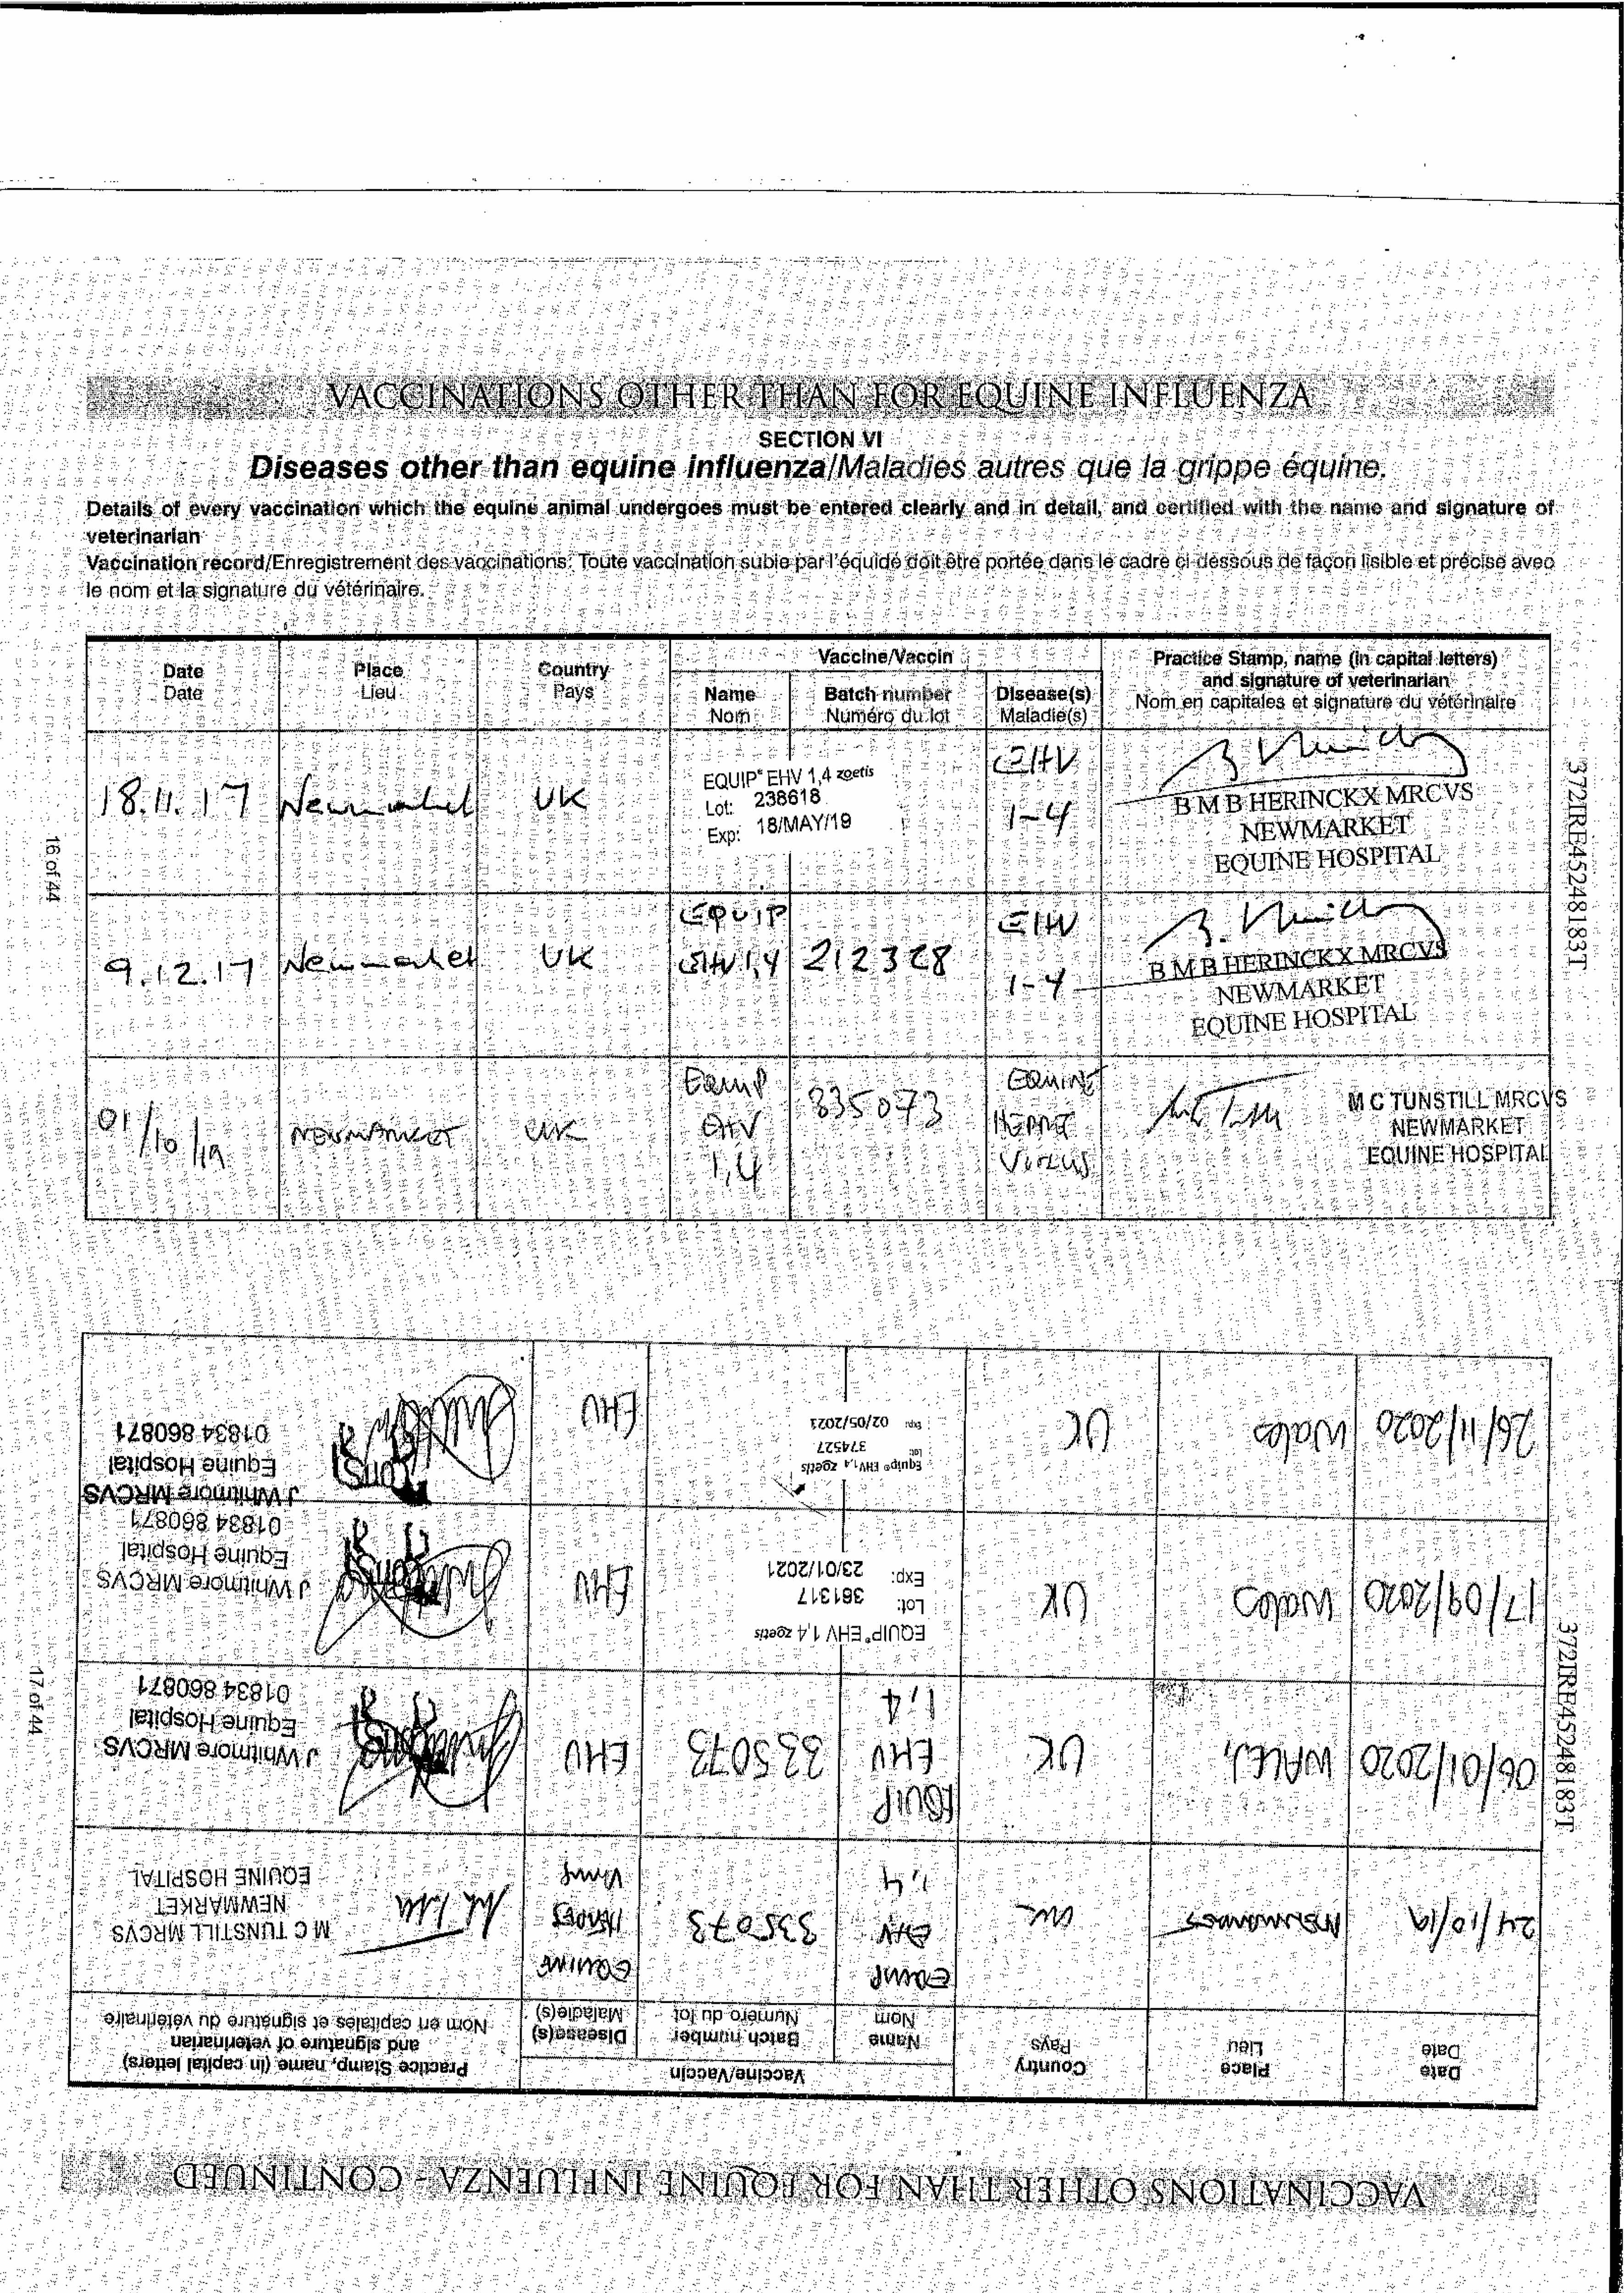 VACCINATIONS OTHER THAN FOR EQUINE INFLUENZA
SECTION VI
Diseases other than equine influenza/Maladies autres que la grippe équine.
Details of every vaccination which the equine animal undergoes must be entered clearly and in detail, and certified with the name and signature of
veterinarian
Vaccination record/Enregistrement des vaccinations: Toute vaccination subie par l'équidé doit être portée dans le cadre ci-dessous de façon lisible et précise avec
le nom et la signature du vétérinaire.
Date
Date
Place
Lieu
Country
Pays
Vaccine/Vaccin
Name
Nom
Batch number
Numéro du lot
Disease(s)
Maladie(s)
Practice Stamp, name (in capital letters)
and signature of veterinarian
Nom en capitales et signature du vétérinaire
18.11.17
Newmarket
UK
EQUIP® EHV 1,4 zoetis
Lot: 238618
Exp: 18/MAY/19
EHV
1-4
B M B HERINCKX MRCVS
NEWMARKET
EQUINE HOSPITAL
9.12.17
Newmarket
UK
EQUIP
EHV 1,4
212328
EHV
1-4
B M B HERINCKX MRCVS
NEWMARKET
EQUINE HOSPITAL
01/10/19
NEWMARKET
UK
EQUIP
EHV
1,4
335073
EQUINE
HERPES
VIRUS
M C TUNSTILL MRCVS
NEWMARKET
EQUINE HOSPITAL
16 of 44
372IRE45248183T
VACCINATIONS OTHER THAN FOR EQUINE INFLUENZA - CONTINUED
Date
Date
Place
Lieu
Country
Pays
Vaccine/Vaccin
Name
Nom
Batch number
Numéro du lot
Disease(s)
Maladie(s)
Practice Stamp, name (in capital letters)
and signature of veterinarian
Nom en capitales et signature du vétérinaire
24/10/19
NEWMARKET
UK
EQUIP
EHV
1,4
335073
EQUINE
HERPES
VIRUS
M C TUNSTILL MRCVS
NEWMARKET
EQUINE HOSPITAL
06/01/2020
WALES
UK
EQUIP
EHV
1,4
335073
EHV
J Whitmore MRCVS
Equine Hospital
01834 860871
17/09/2020
Wales
UK
EQUIP® EHV 1,4 zoetis
Lot: 381317
Exp: 23/01/2021
EHV
J Whitmore MRCVS
Equine Hospital
01834 860871
26/11/2020
Wales
UK
Equip® EHV 1,4 zoetis
Lot: 374527
Exp: 02/05/2021
EHV
J Whitmore MRCVS
Equine Hospital
01834 860871
17 of 44
372IRE45248183T